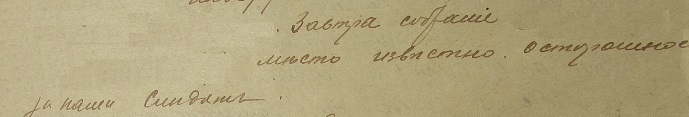 Завтра собранiе
мѣсто извѣстно. Осторожнос
за нами слѣдятъ.